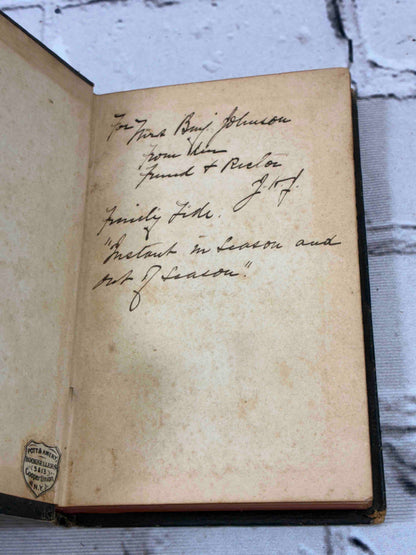 For Mrs Benj. Johnson
from her
friend & Rector
J. H. J.
Trinity Tide.
"Instant in season and
out of season".
POTT & AMERY
BOOKSELLERS
5 & 13
Cooper Union
N.Y.